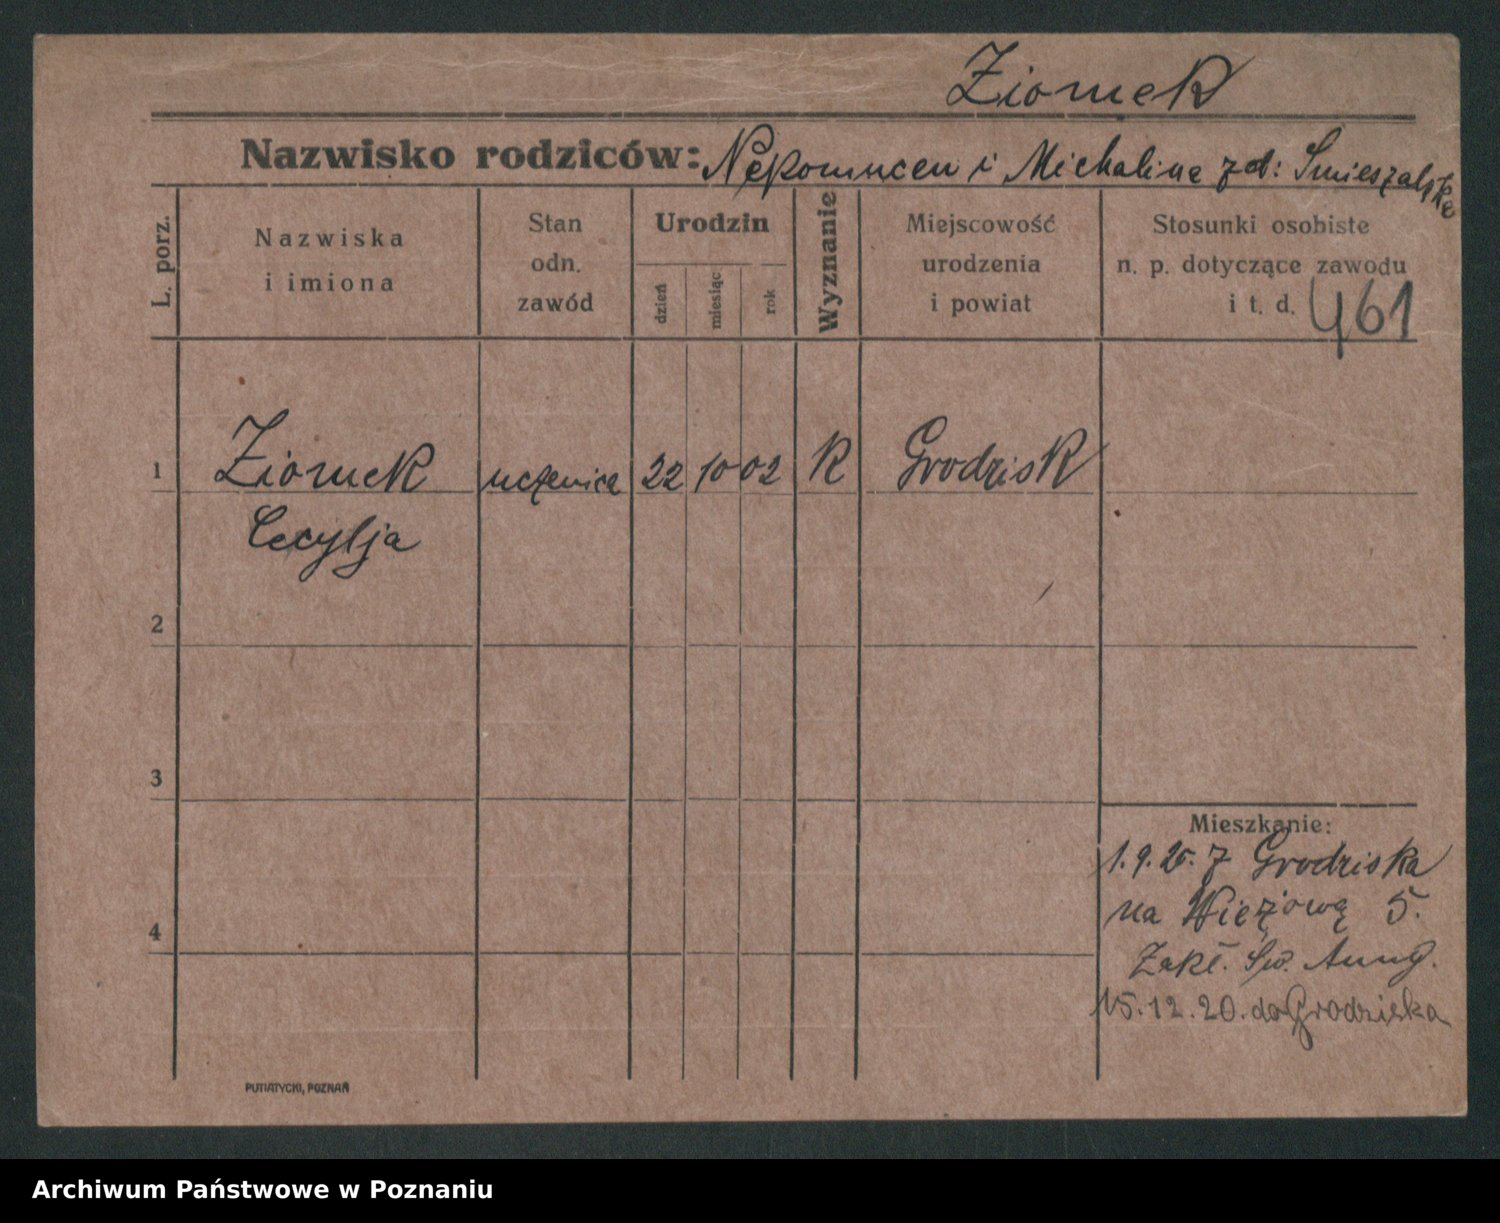 Ziomek
Nazwisko rodziców: Nepomucen i Michalina zd: Smieszalska
L. porz.
Nazwiska
i imiona
Stan
odn.
zawód
Urodzin
dzień
miesiąc
rok
Wyznanie
Miejscowość
urodzenia
i powiat
Stosunki osobiste
n. p. dotyczące zawodu
i t. d. 461
1 Ziomek uczenica 22 10 02 R Grodzisk
Cecylja
2
3
4
Mieszkanie:
1.9.20. z Grodziska
na Wieżową 5.
Zakł. Św. Anny.
15.12.20. do Grodziska
PUTIATYCKI, POZNAŃ
Archiwum Państwowe w Poznaniu